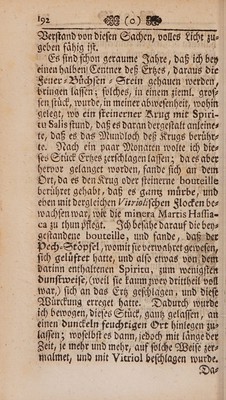 192 (o)
Verstand von diesen Sachen, volles Licht zu-
geben fähig ist.
Es sind schon geraume Jahre, daß ich bey
einen halben Centner deß Ertzes, daraus die
Feuer-Büchsen-Stein gehauen werden,
bringen lassen; solches, in einem ziemi. gros-
sen stück, wurde, in meiner abwesenheit, wohin
gelegt, wo ein steinerner Krug mit Spiri-
tu Salis stund, daß es daran dergestalt anlein-
te, daß es das Mundloch deß Krugs berühr-
te. Nach ein paar Monaten wolte ich die-
ses Stück Ertzes zerschlagen lassen; da es aber
hervor gelanget worden, fande sich an dem
Ort, da es den Krug oder steinerne bouteille
berühret gehabt, daß es gantz mürbe, und
eben mit dergleichen Vitriolischen Flocken be-
wachsen war, wie die minera Martis Hassia-
ca zu thun pflegt. Ich besahe darauf die bey-
gestandene bouteille, und fande, daß der
Pech-Stöpsel, womit sie verwahret gewesen,
sich gelüfret hatte, und also etwas von dem
darinn enthaltenen Spiritu, zum wenigsten
dunstweise, (weil sie kaum zwey drittheil voll
war,) sich an das Ertz geschlagen, und diese
Würckung erreget hatte. Dadurch wurde
ich bewogen, dieses Stück, gantz gelassen, an
einen dunckeln feuchtigen Ort hinlegen zu
lassen; woselbst es dann, jedoch mit länge der
Zeit, je mehr und mehr, auf solche Weise zer-
malmet, und mit Vitriol beschlagen wurde.
Da-